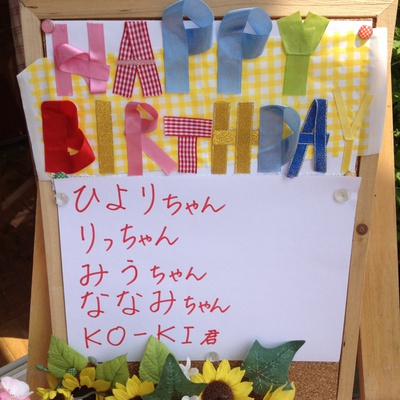 HAPPY
BIRTHDAY
ひよりちゃん
りっちゃん
みうちゃん
ななみちゃん
KO-KI君